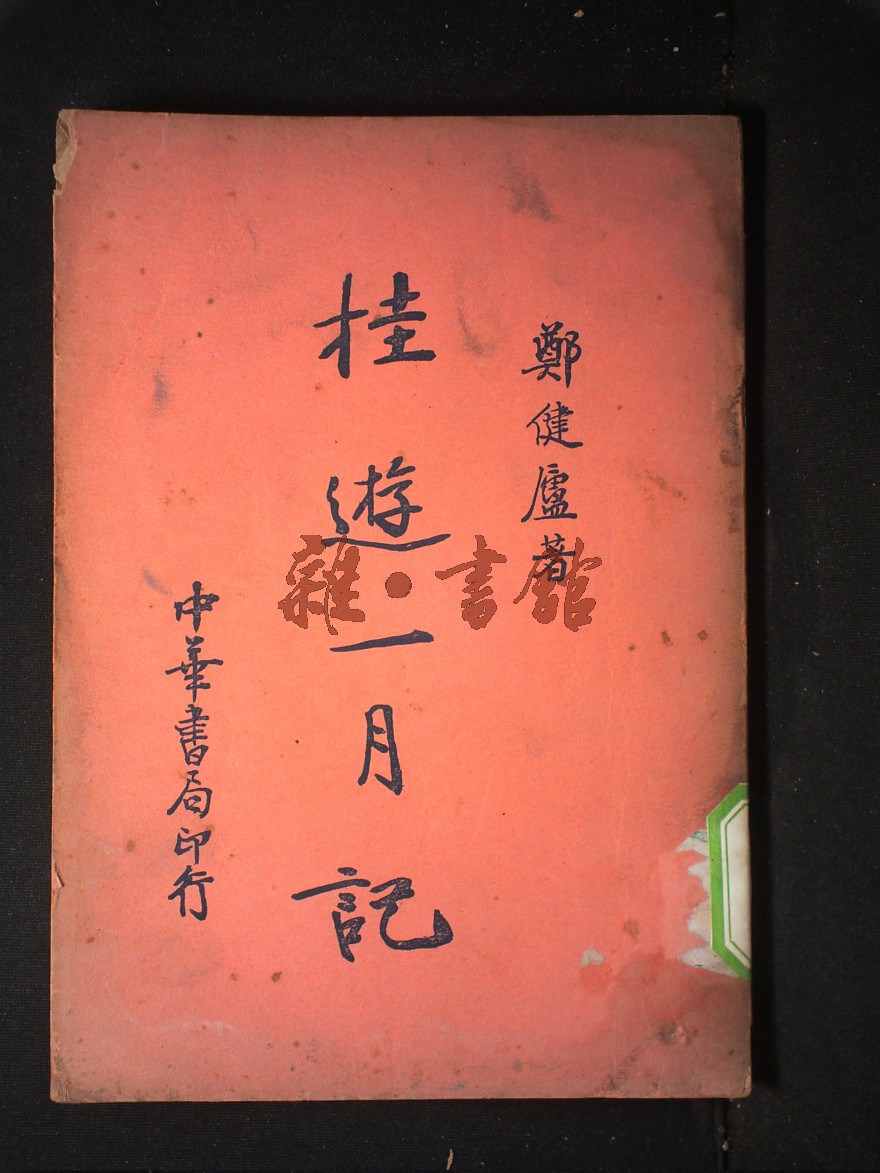 鄭健廬著
桂遊一月記
中華書局印行
雜·書館